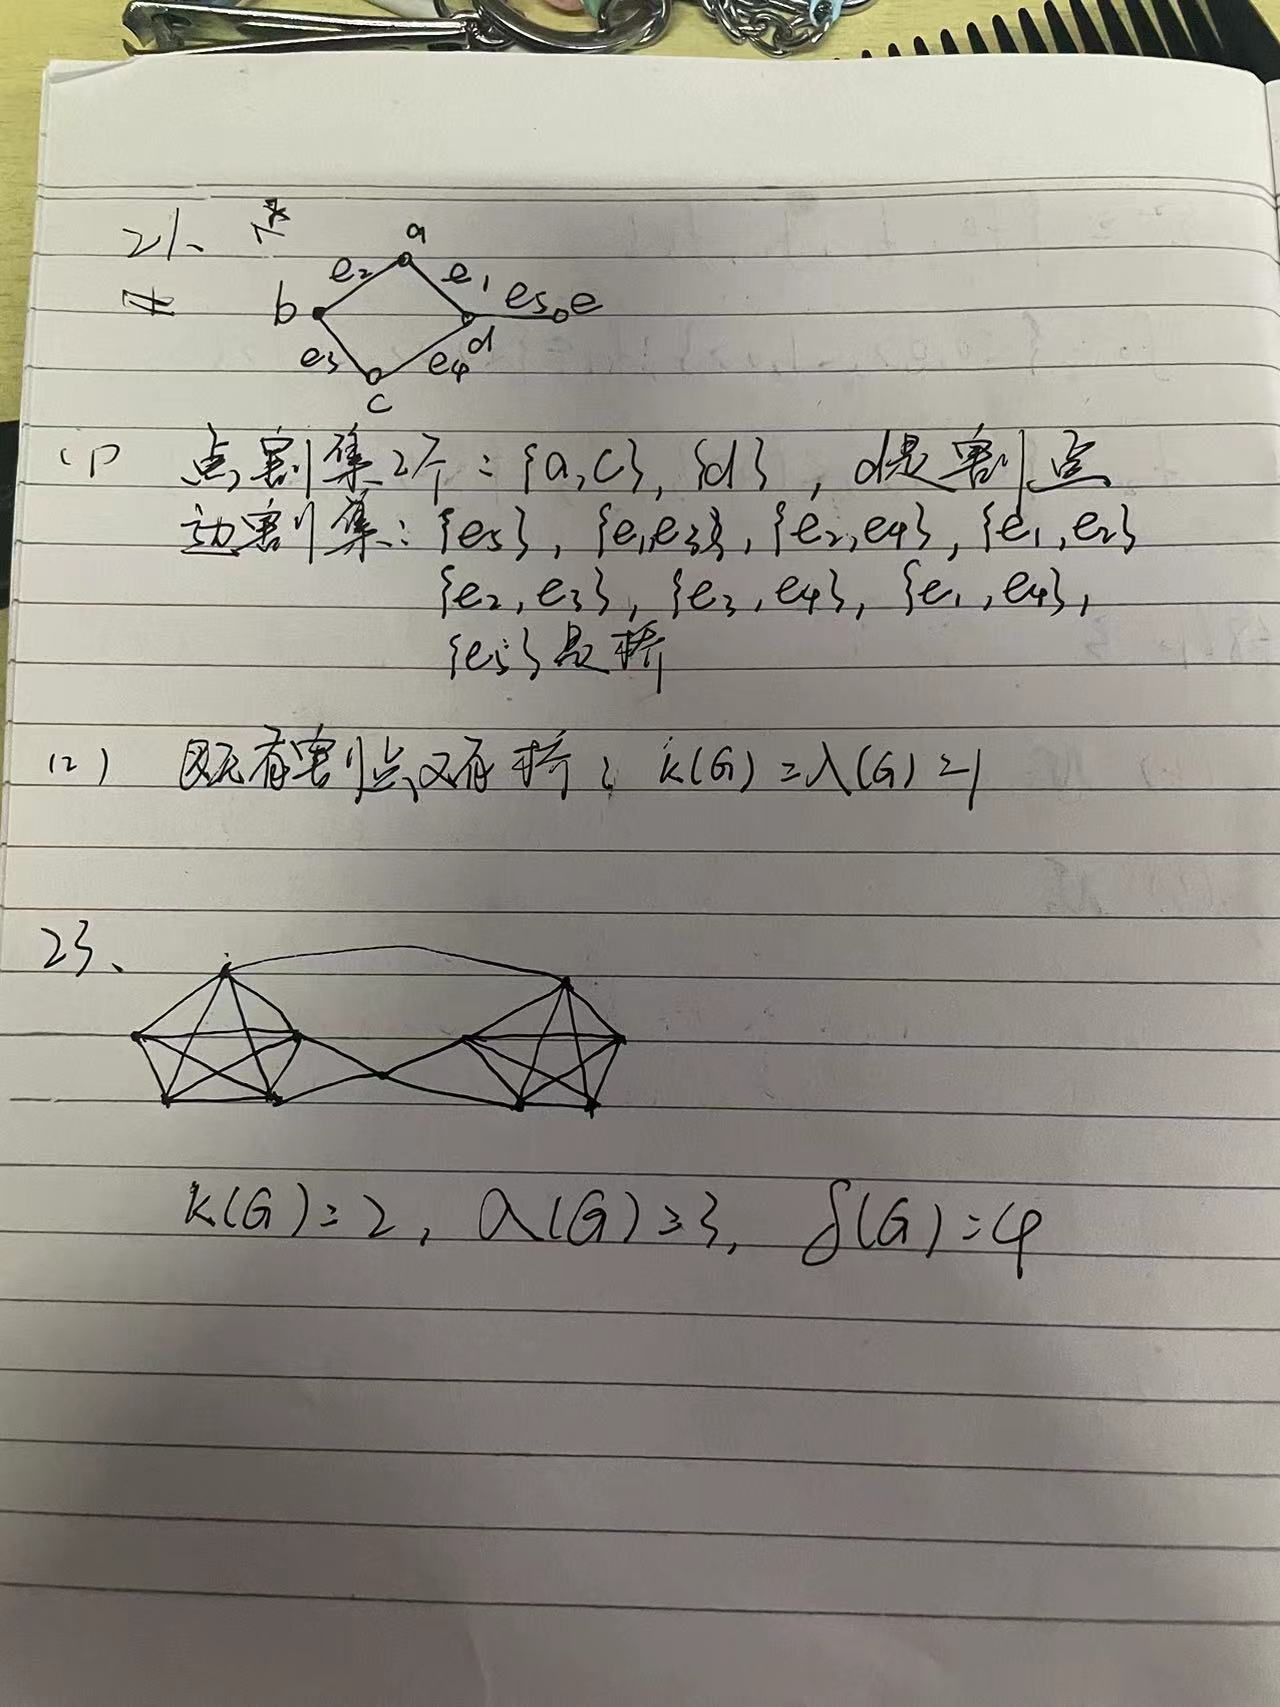 21、
a
e₂ e₁ e₅ e
b
e₃ e₄ d
c
(1) 点割集2个：{a,c}, {d}, d是割点
边割集：{e₅}, {e₁,e₃}, {e₂,e₄}, {e₁,e₂}
{e₂,e₃}, {e₃,e₄}, {e₁,e₄},
{e₅}是桥
(2) 既有割点又有桥； k(G)=λ(G)=1
23、
k(G)=2, λ(G)=3, δ(G)=4